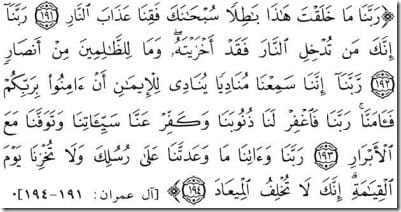 ﴿رَبَّنَا مَا خَلَقْتَ هَٰذَا بَٰطِلًا سُبْحَٰنَكَ فَقِنَا عَذَابَ النَّارِ ﴿١٩١﴾ رَبَّنَآ
إِنَّكَ مَن تُدْخِلِ النَّارَ فَقَدْ أَخْزَيْتَهُۥۖ وَمَا لِلظَّٰلِمِينَ مِنْ أَنصَارٍ
﴿١٩٢﴾ رَّبَّنَآ إِنَّنَا سَمِعْنَا مُنَادِيًا يُنَادِى لِلْإِيمَٰنِ أَنْ ءَامِنُوا۟ بِرَبِّكُمْ
فَـَٔامَنَّاۚ رَبَّنَا فَٱغْفِرْ لَنَا ذُنُوبَنَا وَكَفِّرْ عَنَّا سَيِّـَٔاتِنَا وَتَوَفَّنَا مَعَ
ٱلْأَبْرَارِ ﴿١٩٣﴾ رَبَّنَا وَءَاتِنَا مَا وَعَدتَّنَا عَلَىٰ رُسُلِكَ وَلَا تُخْزِنَا يَوْمَ
ٱلْقِيَٰمَةِۗ إِنَّكَ لَا تُخْلِفُ ٱلْمِيعَادَ ﴿١٩٤﴾﴾ [آل عمران: ١٩١-١٩٤].